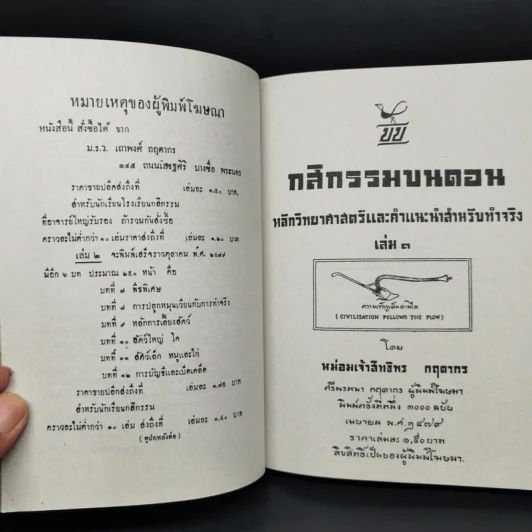 หมายเหตุของผู้พิมพ์โฆษณา
หนังสือนี้ สั่งซื้อได้ จาก
ม.ร.ว. เถาพงศ์ กฤดากร
๑๔๕ ถนนเศรษฐศิริ บางซื่อ พระนคร
ราคาขายปลีกส่งถึงที่ เล่มละ ๑.๕๐ บาท.
สำหรับนักเรียนโรงเรียนกสิกรรม
ที่อาจารย์ใหญ่รับรอง ถ้ารวมกันสั่งซื้อ
คราวละไม่ต่ำกว่า ๑๐ เล่มราคาส่งถึงที่ เล่มละ ๑.๒๐ บาท.
เล่ม ๒ จะพิมพ์เสร็จราวตุลาคม พ.ศ. ๒๔๗๙
มีอีก ๖ บท ประมาณ ๒๕๐ หน้า คือ
บทที่ ๗ พืชพิเศษ
บทที่ ๘ การปลูกหมุนเวียนกับการทำจริง
บทที่ ๙ หลักการเลี้ยงสัตว์
บทที่ ๑๐ สัตว์ใหญ่ โค
บทที่ ๑๑ สัตว์เล็ก หมูและไก่
บทที่ ๑๒ การบัญชีและเบ็ดเตล็ด
ราคาขายปลีกส่งถึงที่ เล่มละ ๑.๗๕ บาท.
สำหรับนักเรียนกสิกรรม
คราวละไม่ต่ำกว่า ๑๐ เล่ม ส่งถึงที่ เล่มละ ๑.๔๐ บาท.
(ดูปกหลังต่อ)
กสิกรรมบนดอน
หลักวิทยาศาสตร์และคำแนะนำสำหรับทำจริง
เล่ม ๑
ความเจริญเดินตามไถ
(CIVILISATION FOLLOWS THE PLOW)
โดย
หม่อมเจ้าสิทธิพร กฤดากร
ศรีพรหมา กฤดากร ผู้พิมพ์โฆษณา
พิมพ์ครั้งที่หนึ่ง ๓๐๐๐ ฉบับ
เมษายน พ.ศ. ๒๔๗๙
ราคาเล่มละ ๑.๕๐ บาท
ลิขสิทธิ์เป็นของผู้พิมพ์โฆษณา.